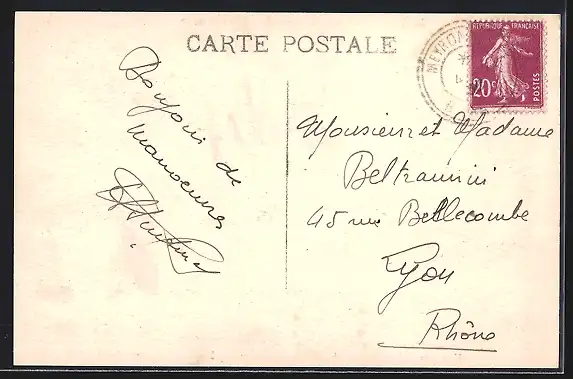 CARTE POSTALE
Bonjour de
manoeuvres
Monsieur et Madame
Beltramini
45 rue Bellecombe
Lyon
Rhône
REPUBLIQUE FRANÇAISE
20c
POSTES
MEYRON